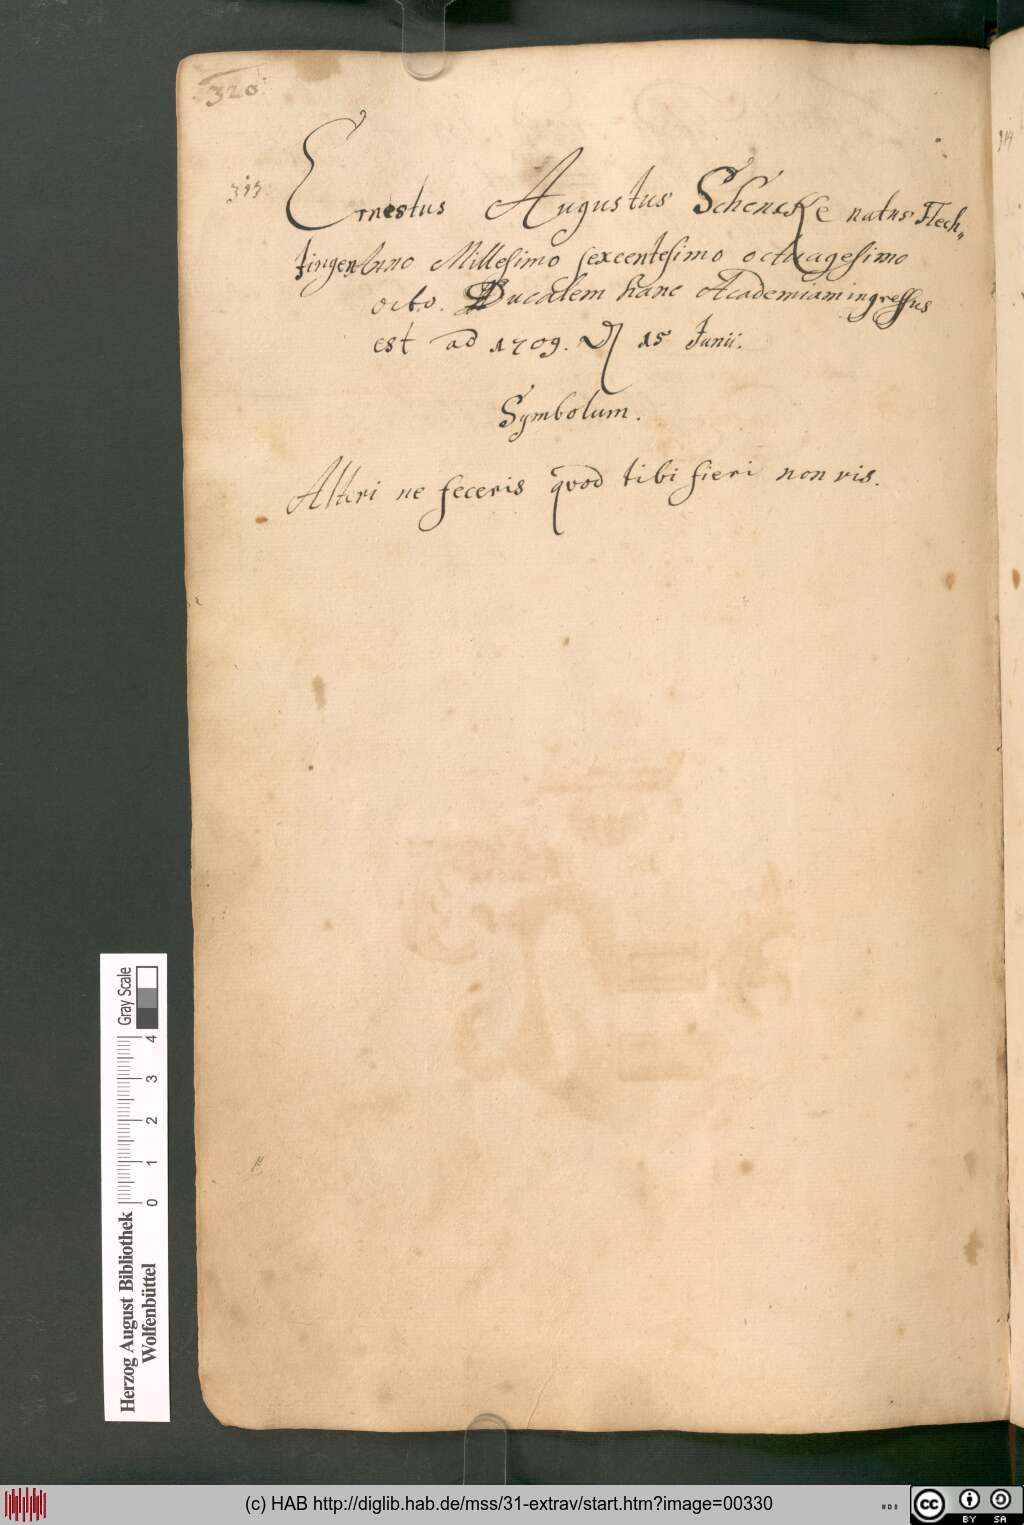 320
313.
Ernestus Augustus Schencke natus Flech„
tingen Anno Millesimo sexcentesimo octuagesimo
octo. Ducalem hanc Academiam ingressus
est ad 1709. D 15 Junii.
Symbolum.
Alteri ne feceris quod tibi fieri non vis.
Herzog August Bibliothek
Wolfenbüttel
0 1 2 3 4
Gray Scale
(c) HAB http://diglib.hab.de/mss/31-extrav/start.htm?image=00330
cc BY SA